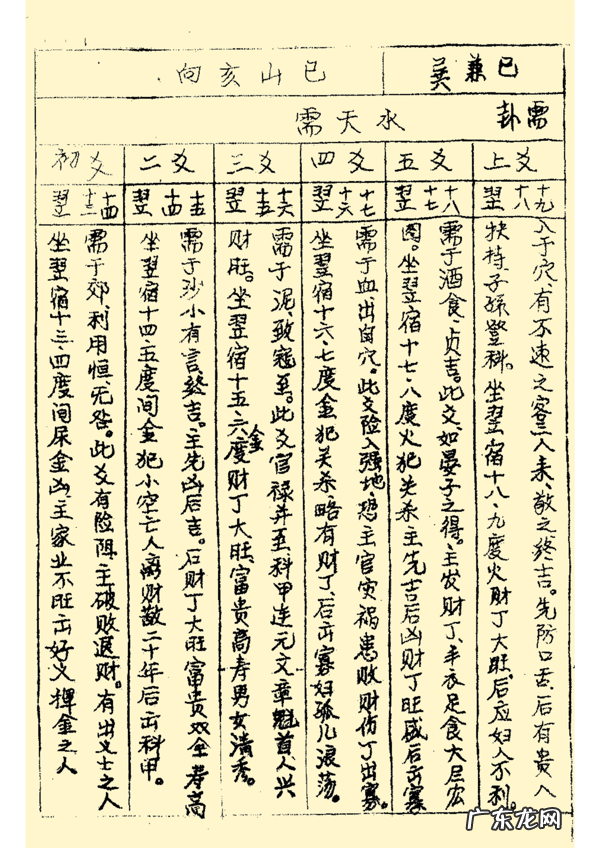 巳兼巽
巳山亥向
需卦
水天需
上爻
翌十八十九
入于穴、有不速之客人来、敬之终吉。先防口舌、后有贵人
扶持子孙登科。坐翌宿十八、九度火财丁大旺、后应妇人不利。
五爻
翌十七十八
需于酒食、贞吉。此爻、如晏子之得。主发财丁、丰衣足食大启宏
图。坐翌宿十七、八度火犯关杀主先吉后凶财丁旺盛后出寡
四爻
翌十六十七
需于血出自穴。此爻险入强地、恐主官灾祸患败财伤丁出寡。
坐翌宿十六、七度金犯关杀略有财丁、后出寡妇孤儿浪荡。
三爻
翌十五十六
需于泥、致寇至。此爻官禄并至、科甲连元文章魁首、人兴
财旺。坐翌宿十五六度金财丁大旺、富贵高寿男女清秀。
二爻
翌十四十五
需于沙小有言、终吉。主先凶后吉。后财丁大旺富贵双全寿高
坐翌宿十四、五度间金犯小空亡人离财散二十年后出科甲。
初爻
翌十三十四
需于郊、利用恒、无咎。此爻有险阻、主破败退财。有出义士之人
坐翌宿十三、四度间属金凶、主家业不旺出好义挥金之人
广东龙网